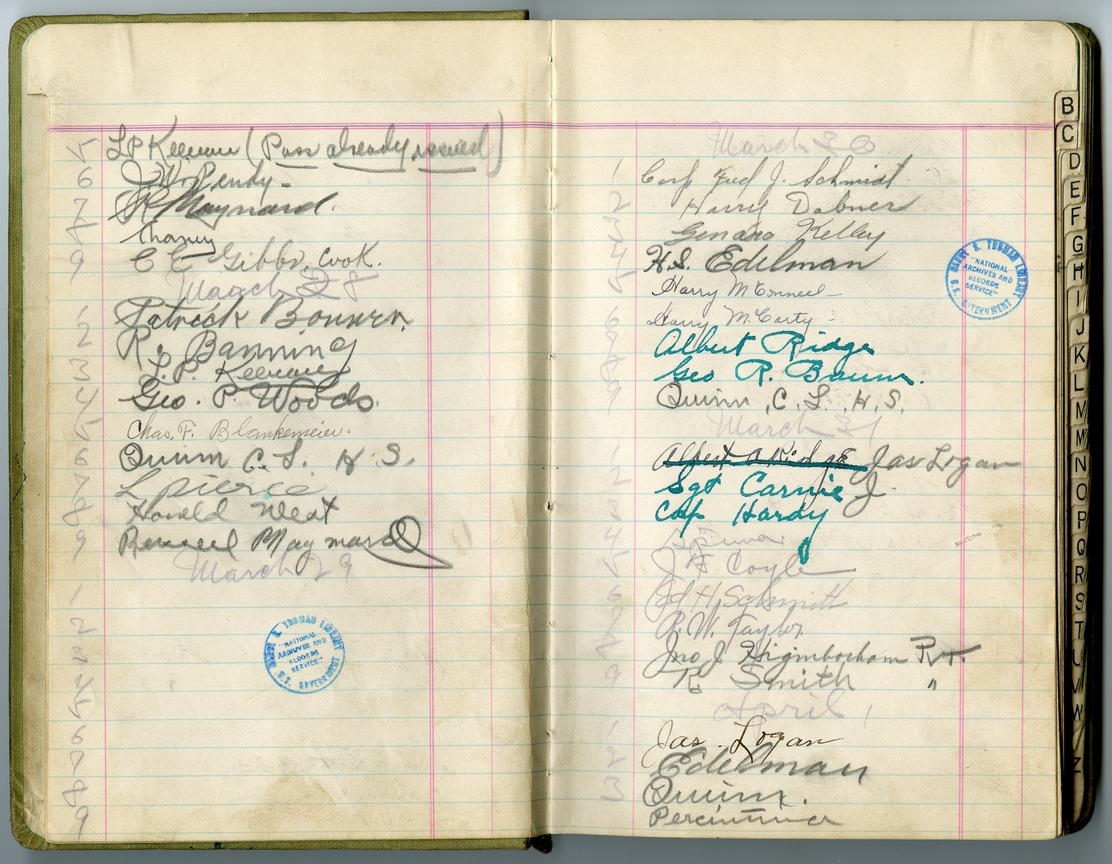 5 L P Keenan (Pass already issued)
6 J. W. Pendy
7 R Maynard.
Chaney
9 C E Gibbs, Cook.
March 28
1 Patrick Bonner
2 R. Banning
3 L. P. Keenan
4 Geo. P. Woods.
5 Chas. F. Blankemeier.
6 Quinn C. S. H. S.
7 L Pierce
8 Harold West
9 Maynard
March 29
1
2
3
4
5
6
7
8
9
HARRY S. TRUMAN LIBRARY
"NATIONAL ARCHIVES AND RECORDS SERVICE"
U.S. GOVERNMENT
March 30
1 Corp Fred J. Schmidt
2 Harry Dabner
3 Kelley
4 H.S. Edelman
5 Harry McConneel
6 Harry McCarty
7 Albert Ridge
8 Geo R. Baum.
9 Quinn, C. S., H. S.
March 31
1 Albert A Ridge Jas Logan
2 Sgt Carnie J
3 Cap Hardy
4
5 J H Coyle
6 Ed H. Schmitt
7 R. W. Taylor
8 Jno J Higinbotham
9 R Smith "
April 1
1 Jas. Logan
2 Edelman
3 Quinn.
HARRY S. TRUMAN LIBRARY
"NATIONAL ARCHIVES AND RECORDS SERVICE"
U.S. GOVERNMENT
B
C
D
E
F
G
H
I
J
K
L
M
M
N
O
P
Q
R
S
T
U
V
W
Z